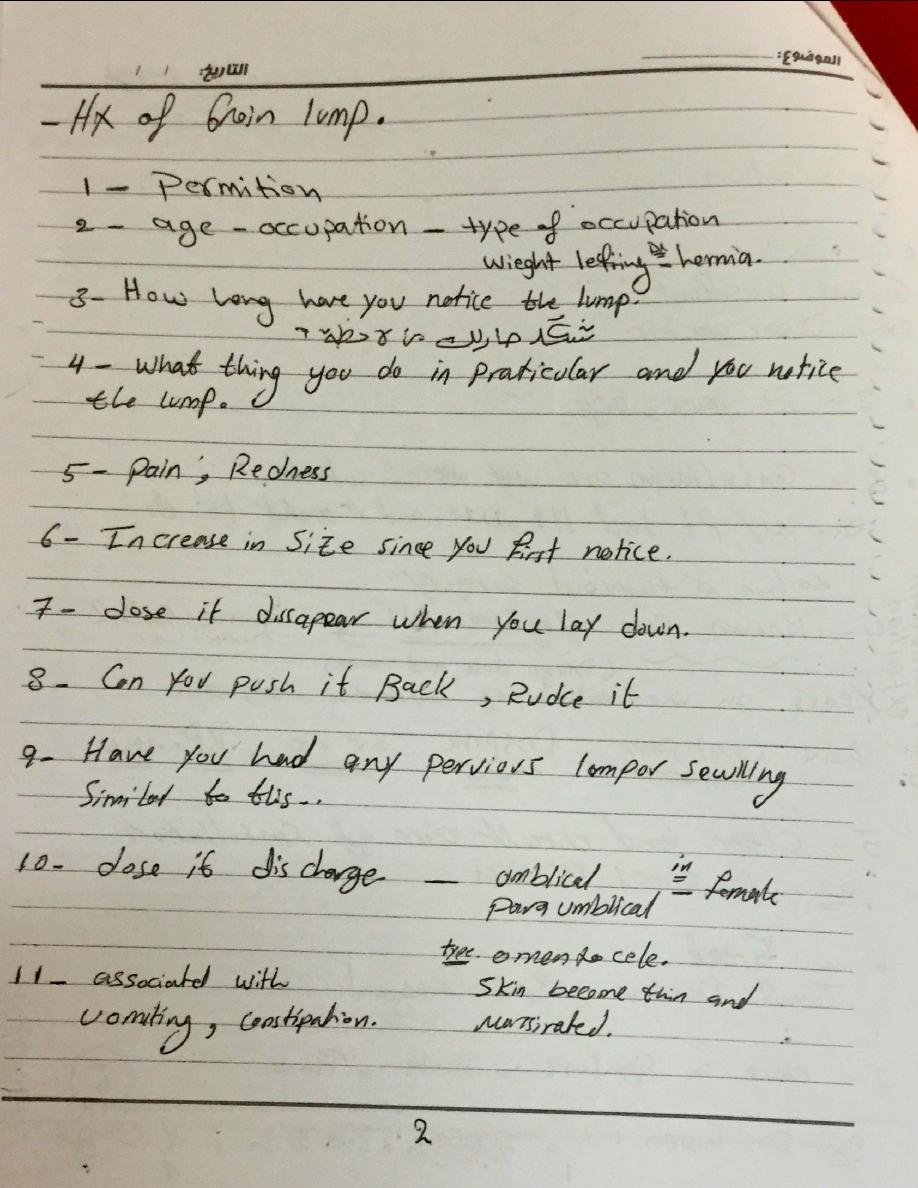 الموضوع:
التاريخ: / /
- HX of Groin lump.
1 - Permition
2 - age - occupation - type of occupation
wieght lefting ⇒ hernia.
3- How long have you notice the lump.
شگد صارلك ملاحظة؟
4 - What thing you do in praticular and you notice
the lump.
5- Pain, Redness
6- Increase in Size since you first notice.
7- dose it dissapear when you lay down.
8- Can you push it Back, Rudce it
9- Have you had any pervious lump or sewlling
Similar to this..
10- dose it discharge - omblical in female
para umblical
type omentocele.
11- associated with Skin become thin and
vomiting, constipation.
2